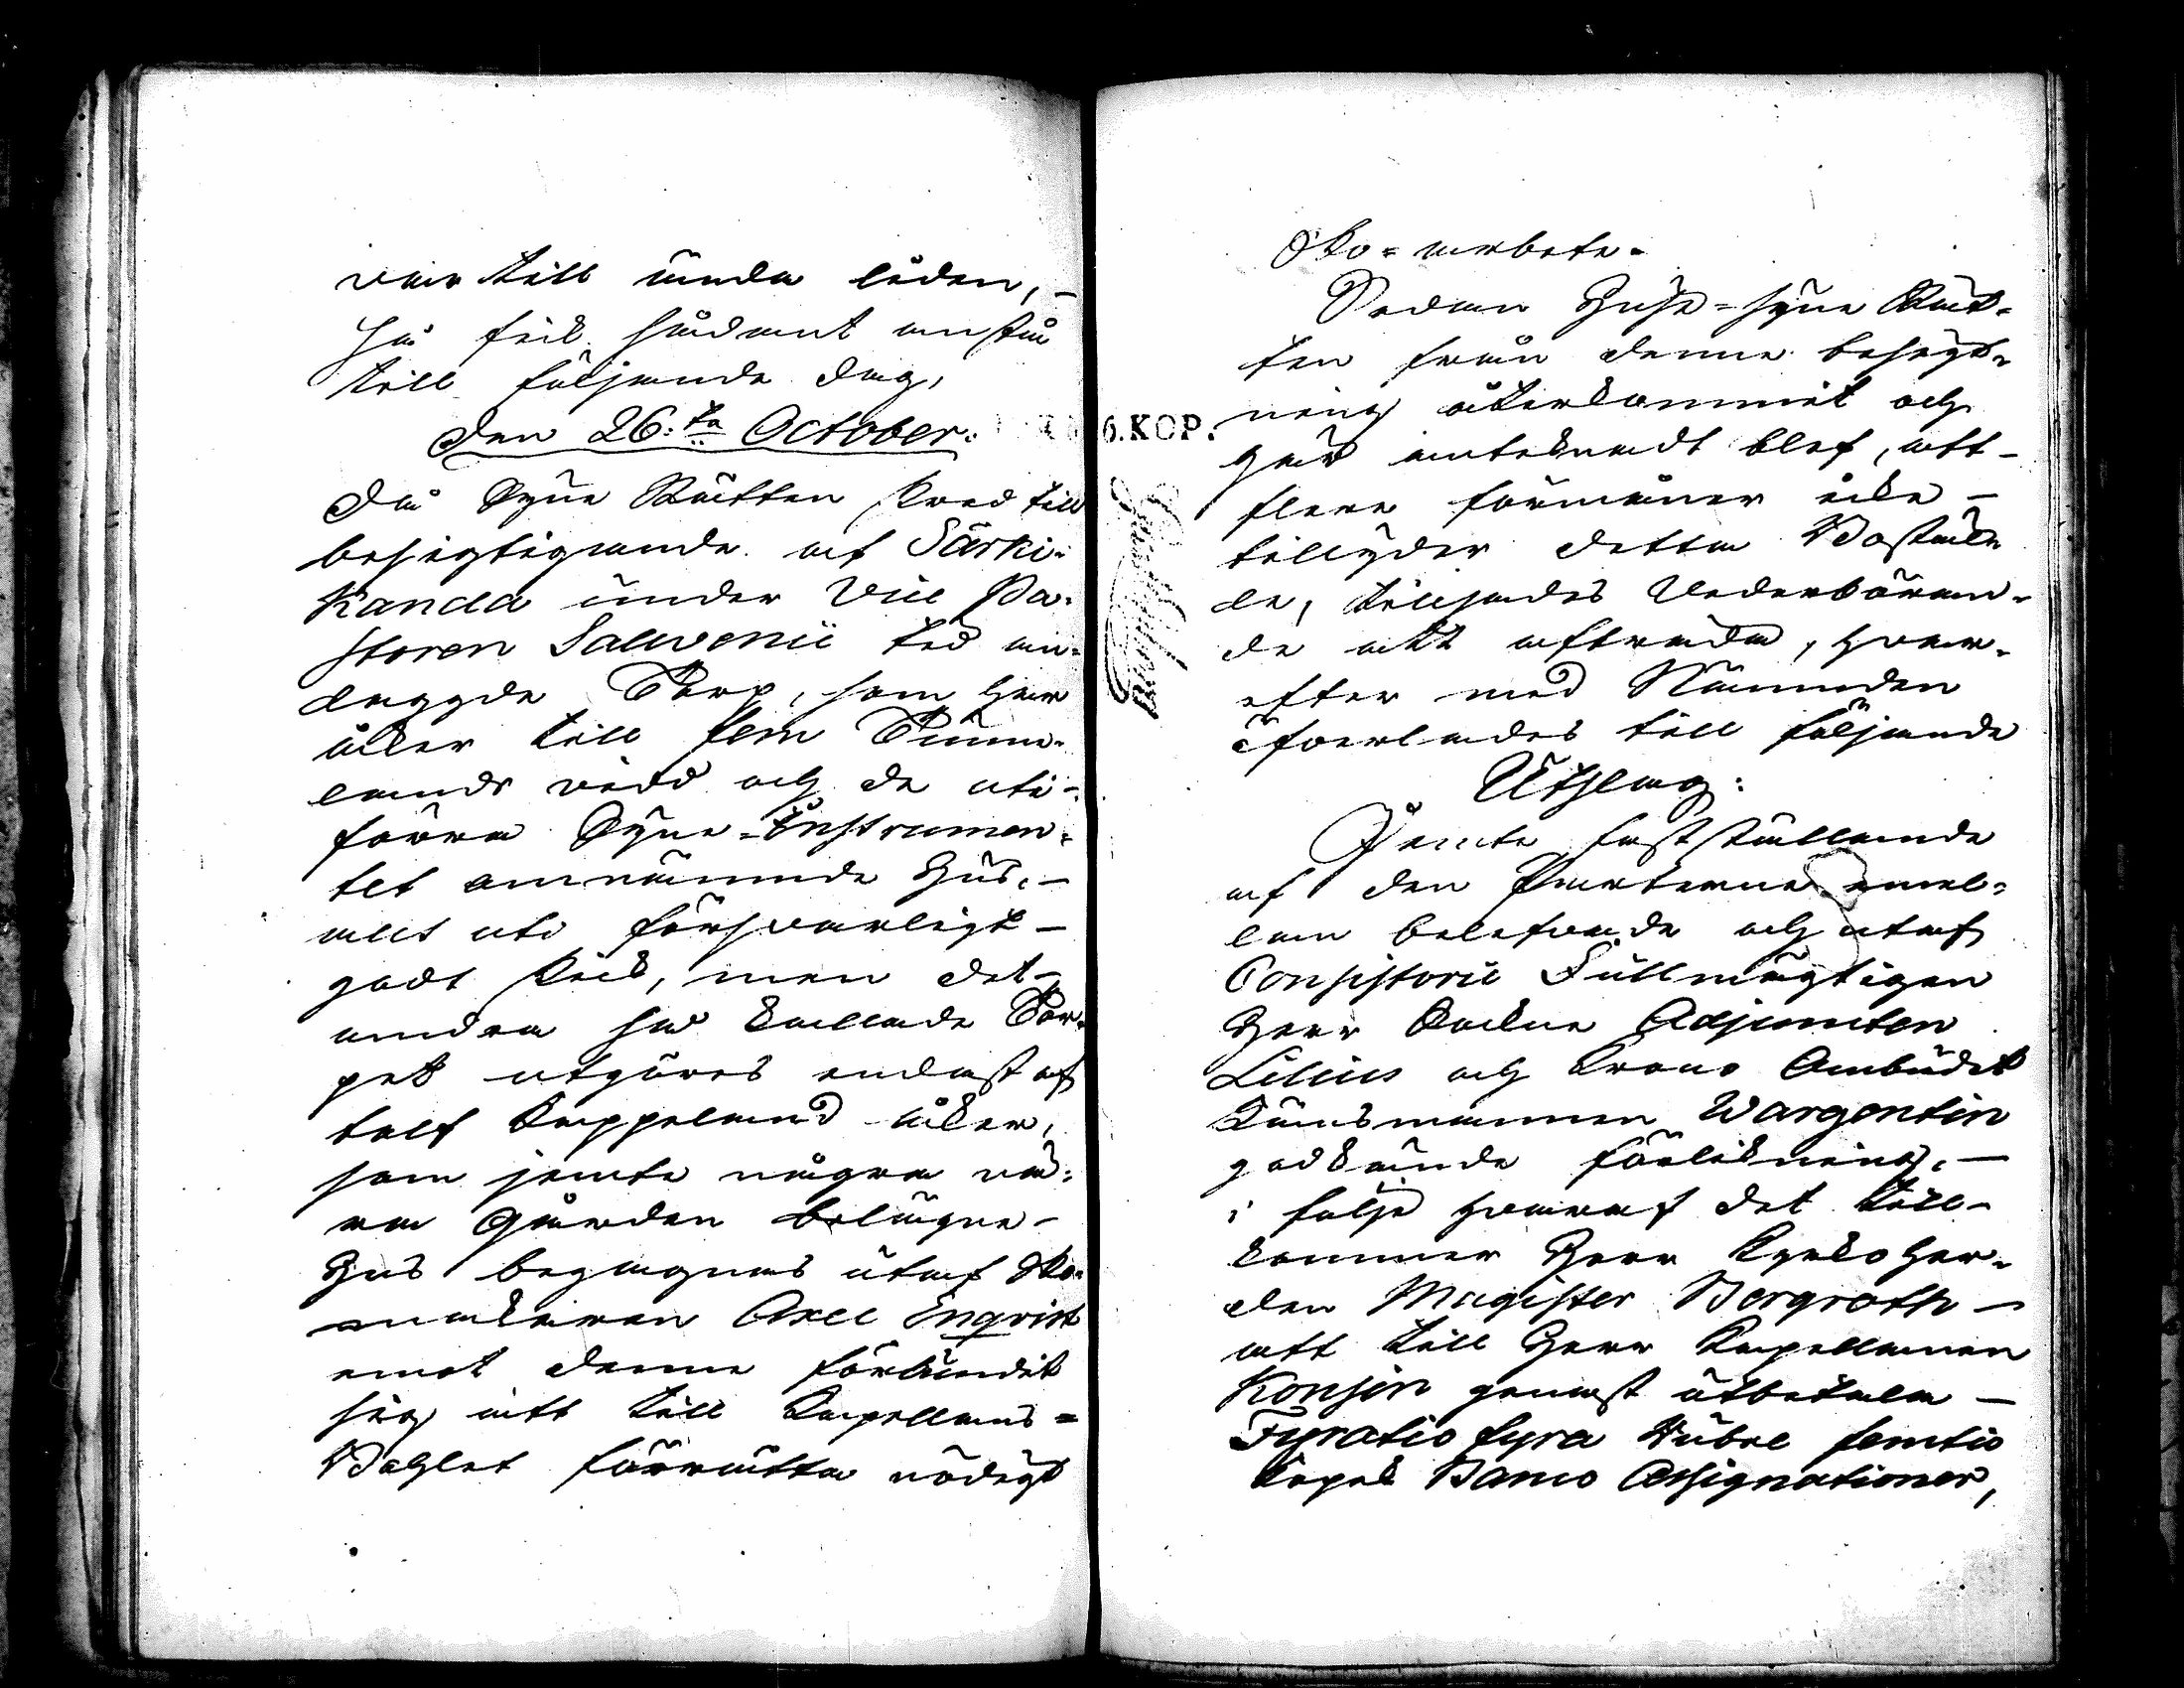 var till ända liden, –
så fick sådant anstå
till följande dag,
den 26:ta October.
då Syne Rätten skred till
besigtigande af Särki-
kanda under Vice Pa-
storen Salvenii tid an-
laggde Torp, som har
åker till fem Tunne-
lands vidd och de uti
förra Syne-Instrumen-
tet omnämnde Hus, –
allt uti försvarligt –
godt skick, men det
andra så kallade Tor-
pet utgöres endast af
tolf Kappeland åker,
som jemte några nä-
ra Gården belägne –
Hus begagnas utaf Sko-
makaren Axel Enqvist
emot denne förbundit
sig att till Kapellans=
Bohlet förrätta nödigt
Sko=arbete.
Sedan Huse=syne Rät-
ten från denne besigt-
ning återkommit och
här antecknadt blef, att –
flere förmåner icke –
tillyder detta Boställ-
le, tillsades Vederböran-
de att afträda, hvar-
efter med Nämnden
öfverlades till följande
Utslag:
Jemte fastställande
af den Parterne emel-
lan belefvade och utaf
Consistorii Fullmägtigen
Herr Sockne Adjuncten
Lilius och Krono Ombudet
Länsmannen Wargentin
godkände förlikning, –
i följe hvaraf det till-
kommer Herr Kyrkoher-
den Magister Bergroth –
att till Herr Kapellanen
Konsin genast utbetala –
Fyratio fyra Rubel femtio
Kopek Banco Assignationer,
6.KOP.